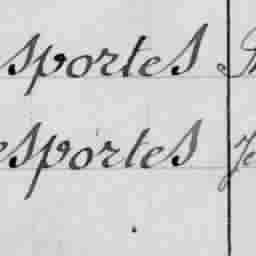 sportes
esportes